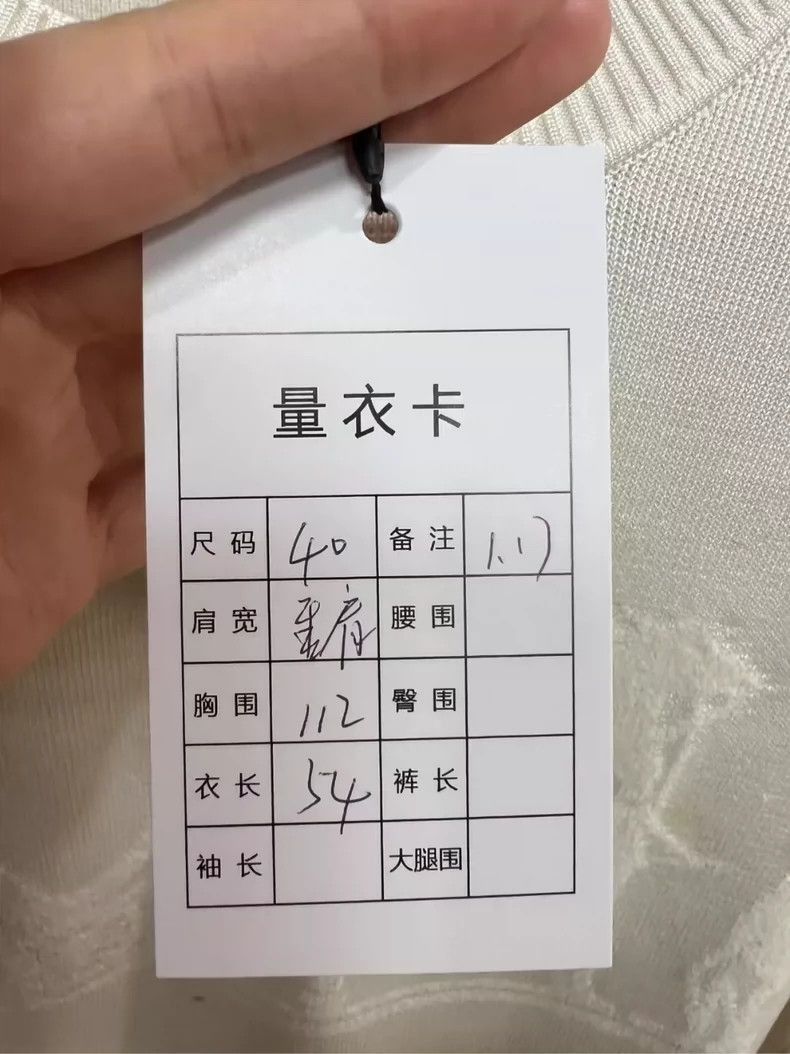 量衣卡
尺码 40 备注 1.17
肩宽 垂肩 腰围
胸围 112 臀围
衣长 54 裤长
袖长 大腿围